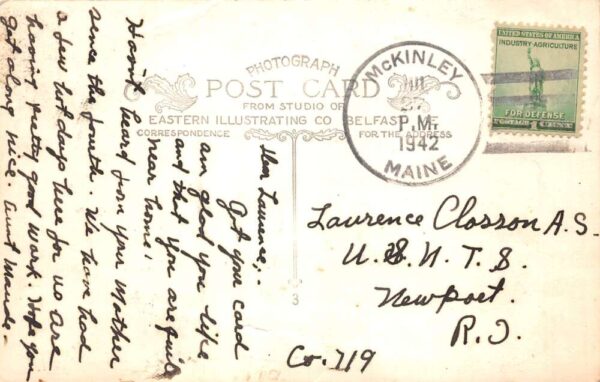 PHOTOGRAPH
POST CARD
FROM STUDIO OF
EASTERN ILLUSTRATING CO BELFAST
CORRESPONDENCE
FOR THE ADDRESS
McKINLEY
JUL
27
P.M.
1942
MAINE
UNITED STATES OF AMERICA
INDUSTRY AGRICULTURE
FOR DEFENSE
POSTAGE 1 CENT
Dear Lawrence;-
Got your card
am glad you like
and that you are quite
near home.
Havn't heard from your Mother
since the fourth. We have had
a few hot days here for us are
having pretty good work. Hope you
get along nice. Aunt Maude.
Laurence Closson A.S.
U.S.N.T.S.
Newport.
R.I.
Co. 719
3